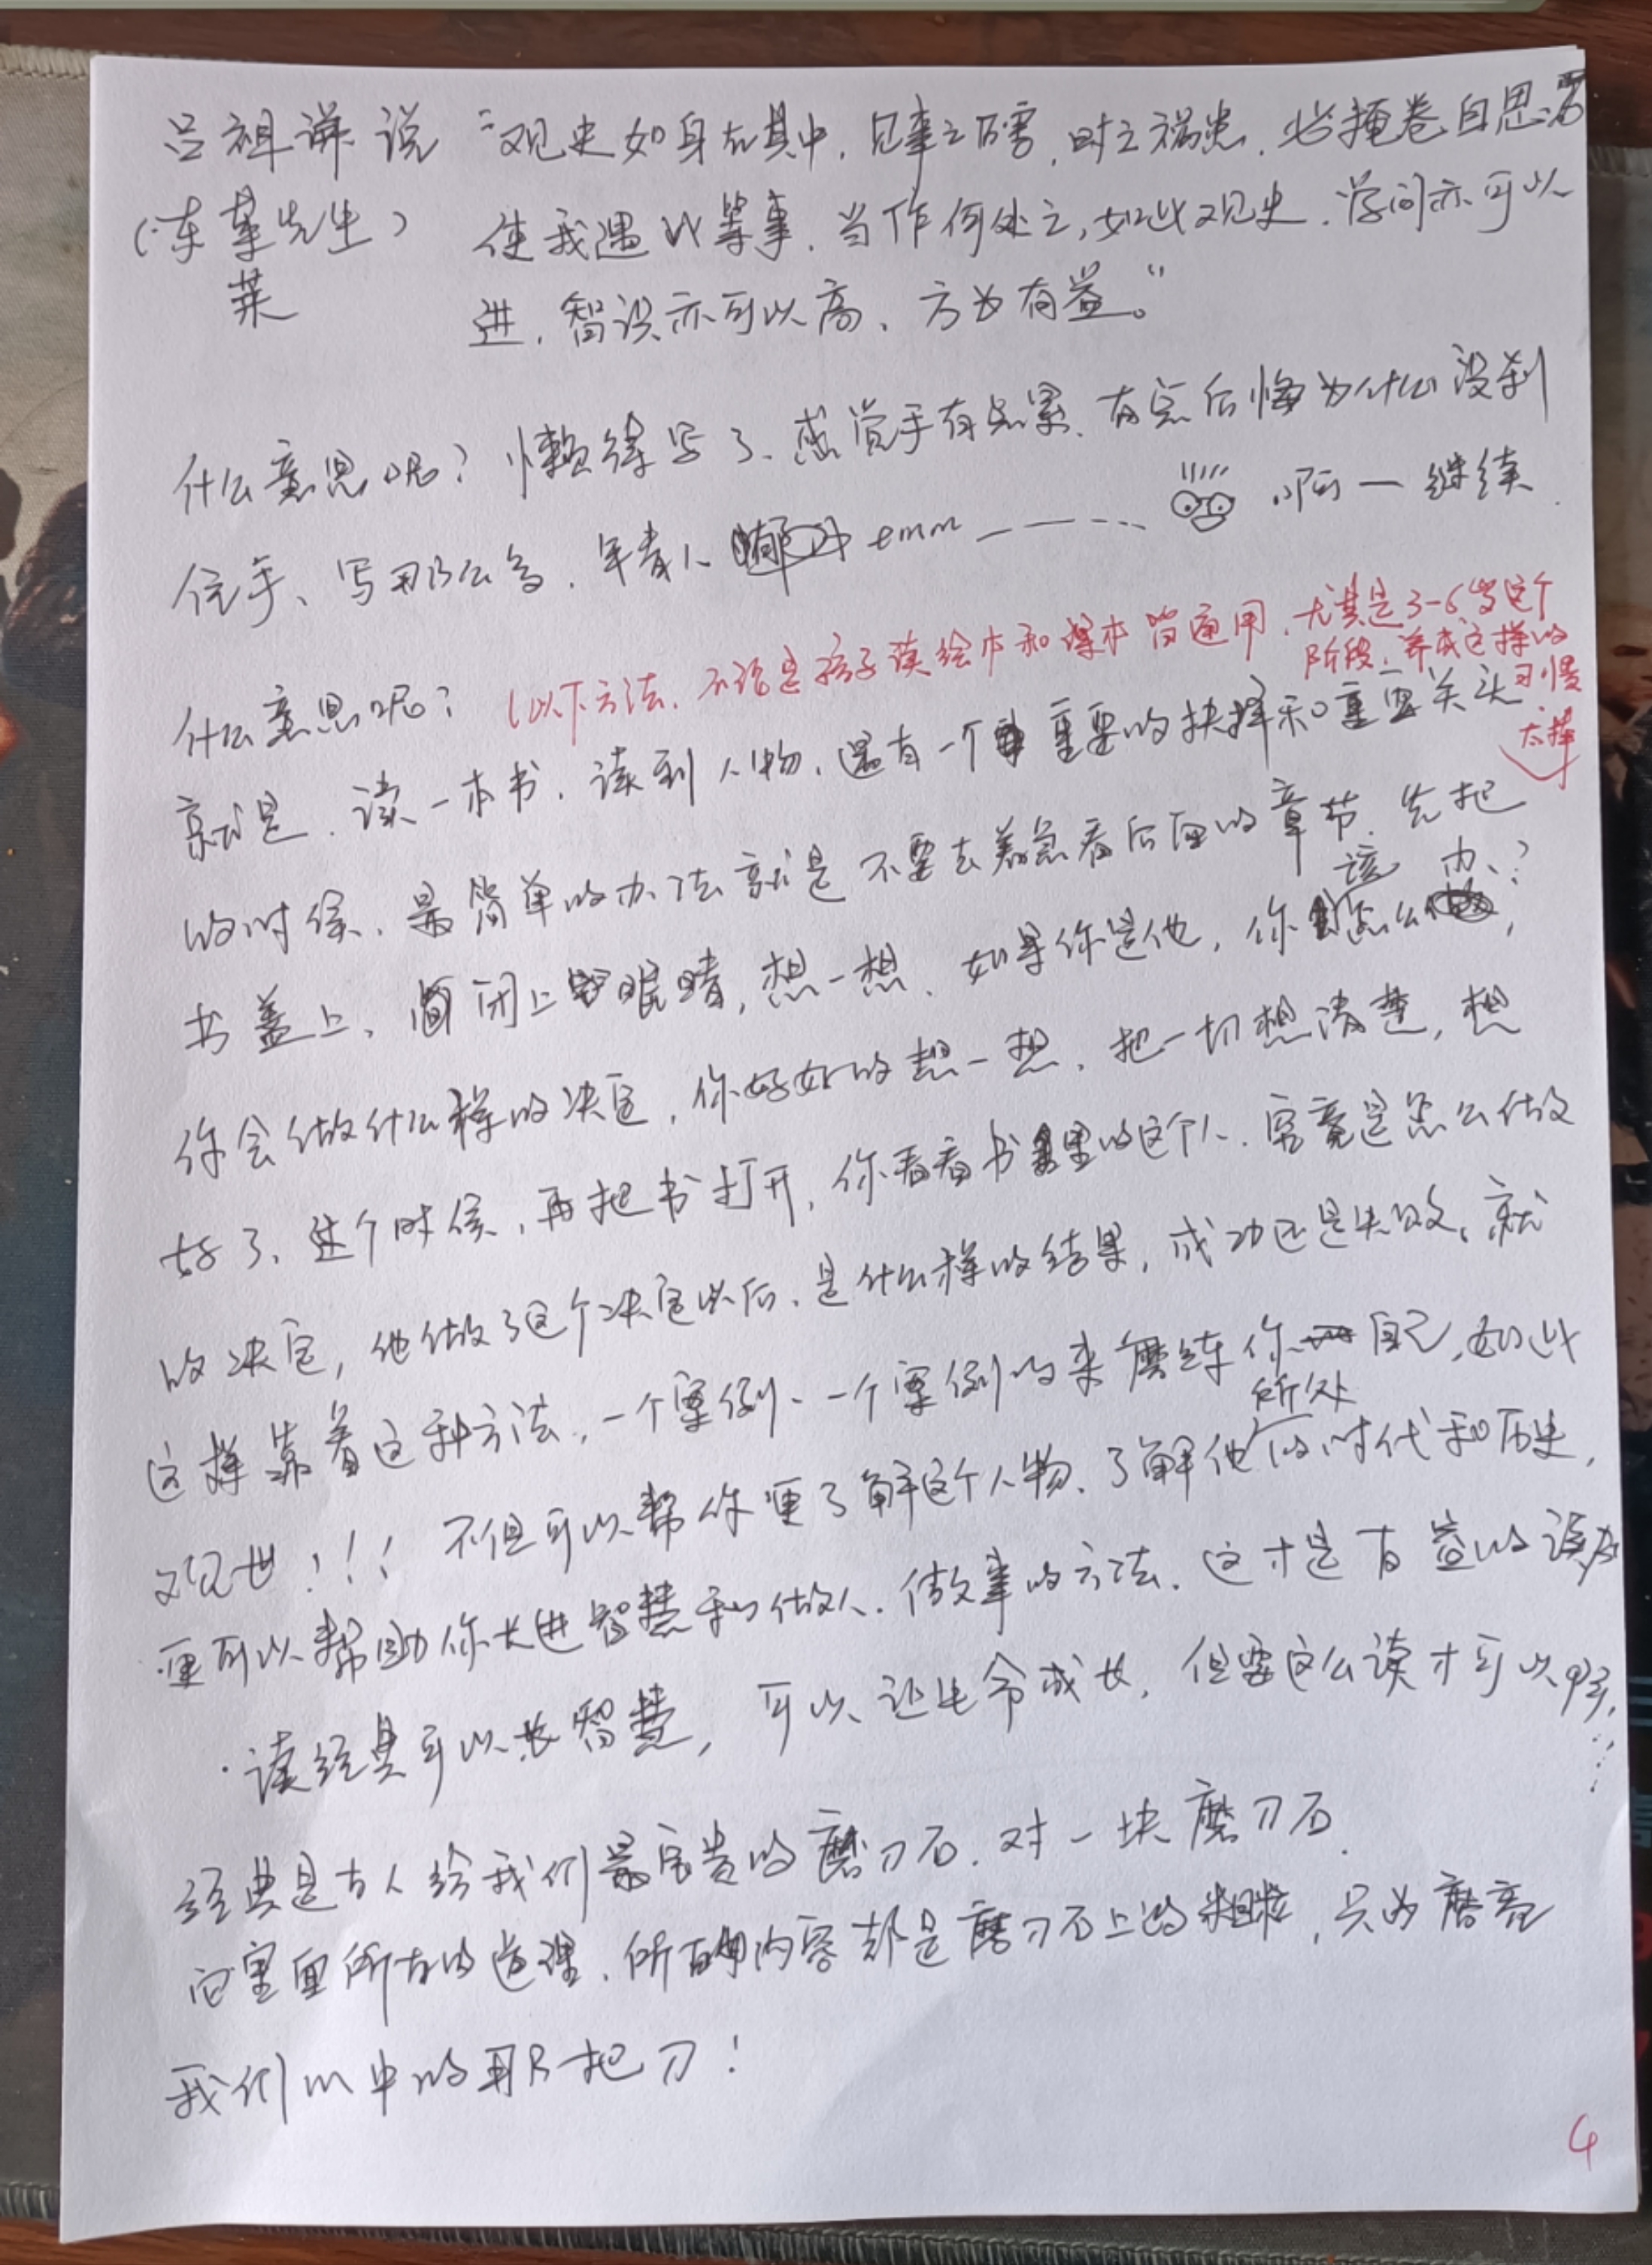 吕祖谦说 “观史如身在其中,见事之历害,时之祸患,必掩卷自思,若
(东莱先生) 使我遇此等事,当作何处之,如此观史,学问亦可以
莱
进,智识亦可以高、方为有益。”
什么意思呢?懒得写了、感觉手有点累、有点后悔为什么没刹
住手、写那么多,年青人 emm 啊一继续.
什么意思呢?
(以下方法,不论是孩子读绘本和课本皆通用,尤其是3-6岁这个
阶段,养成这样的
习惯
太棒
就是,读一本书,读到人物,还有一个重要的抉择和重要关头
的时候、最简单的办法就是不要去着急看后面的章节,先把
书盖上、闭上眼睛,想一想、如果你是他,你该怎么办?
你会做什么样的决定,你好好的想一想,把一切想清楚,想
好了、这个时候,再把书打开,你看看书里的这个人.究竟是怎么做
的决定,他做了这个决定以后、是什么样的结果,成功还是失败、就
这样靠着这种方法,一个案例、一个案例的来磨练你自己,如此
观世!!!不但可以帮你更了解这个人物、了解他所处的时代和历史,
更可以帮助你长进智慧和做人.做事的方法.这才是有益的读
·读经典可以长智慧,可以让生命成长,但要这么读才可以
经典是古人给我们最宝贵的磨刀石.对一块磨刀石.
它里面所有的道理、所有的内容都是磨刀石上的粗粒,只为磨亮
我们心中的那把刀!
4